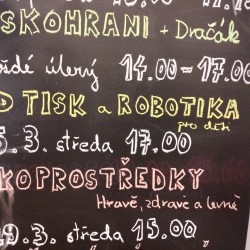 SKOHRANI + Dračák
úterý 14.00-17.00
D TISK a ROBOTIKA
pro děti
5.3. středa 17.00
KOPROSTŘEDKY
Hravě, zdravě a levně
29.3. středa 15.00